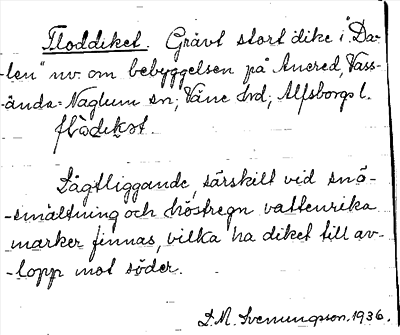 Floddiket. Grävt stort dike i "Da-
-len" nv. om bebyggelsen på Ancred, Vass-
-ända-Naglum sn; Väne hd; Älfsborgs l.
flòdekət.
Lågtliggande, särskilt vid snö-
-smältning och höstregn vattenrika
marker finnas, vilka ha diket till av-
-lopp mot söder.
D. M. Svenungsson. 1936.